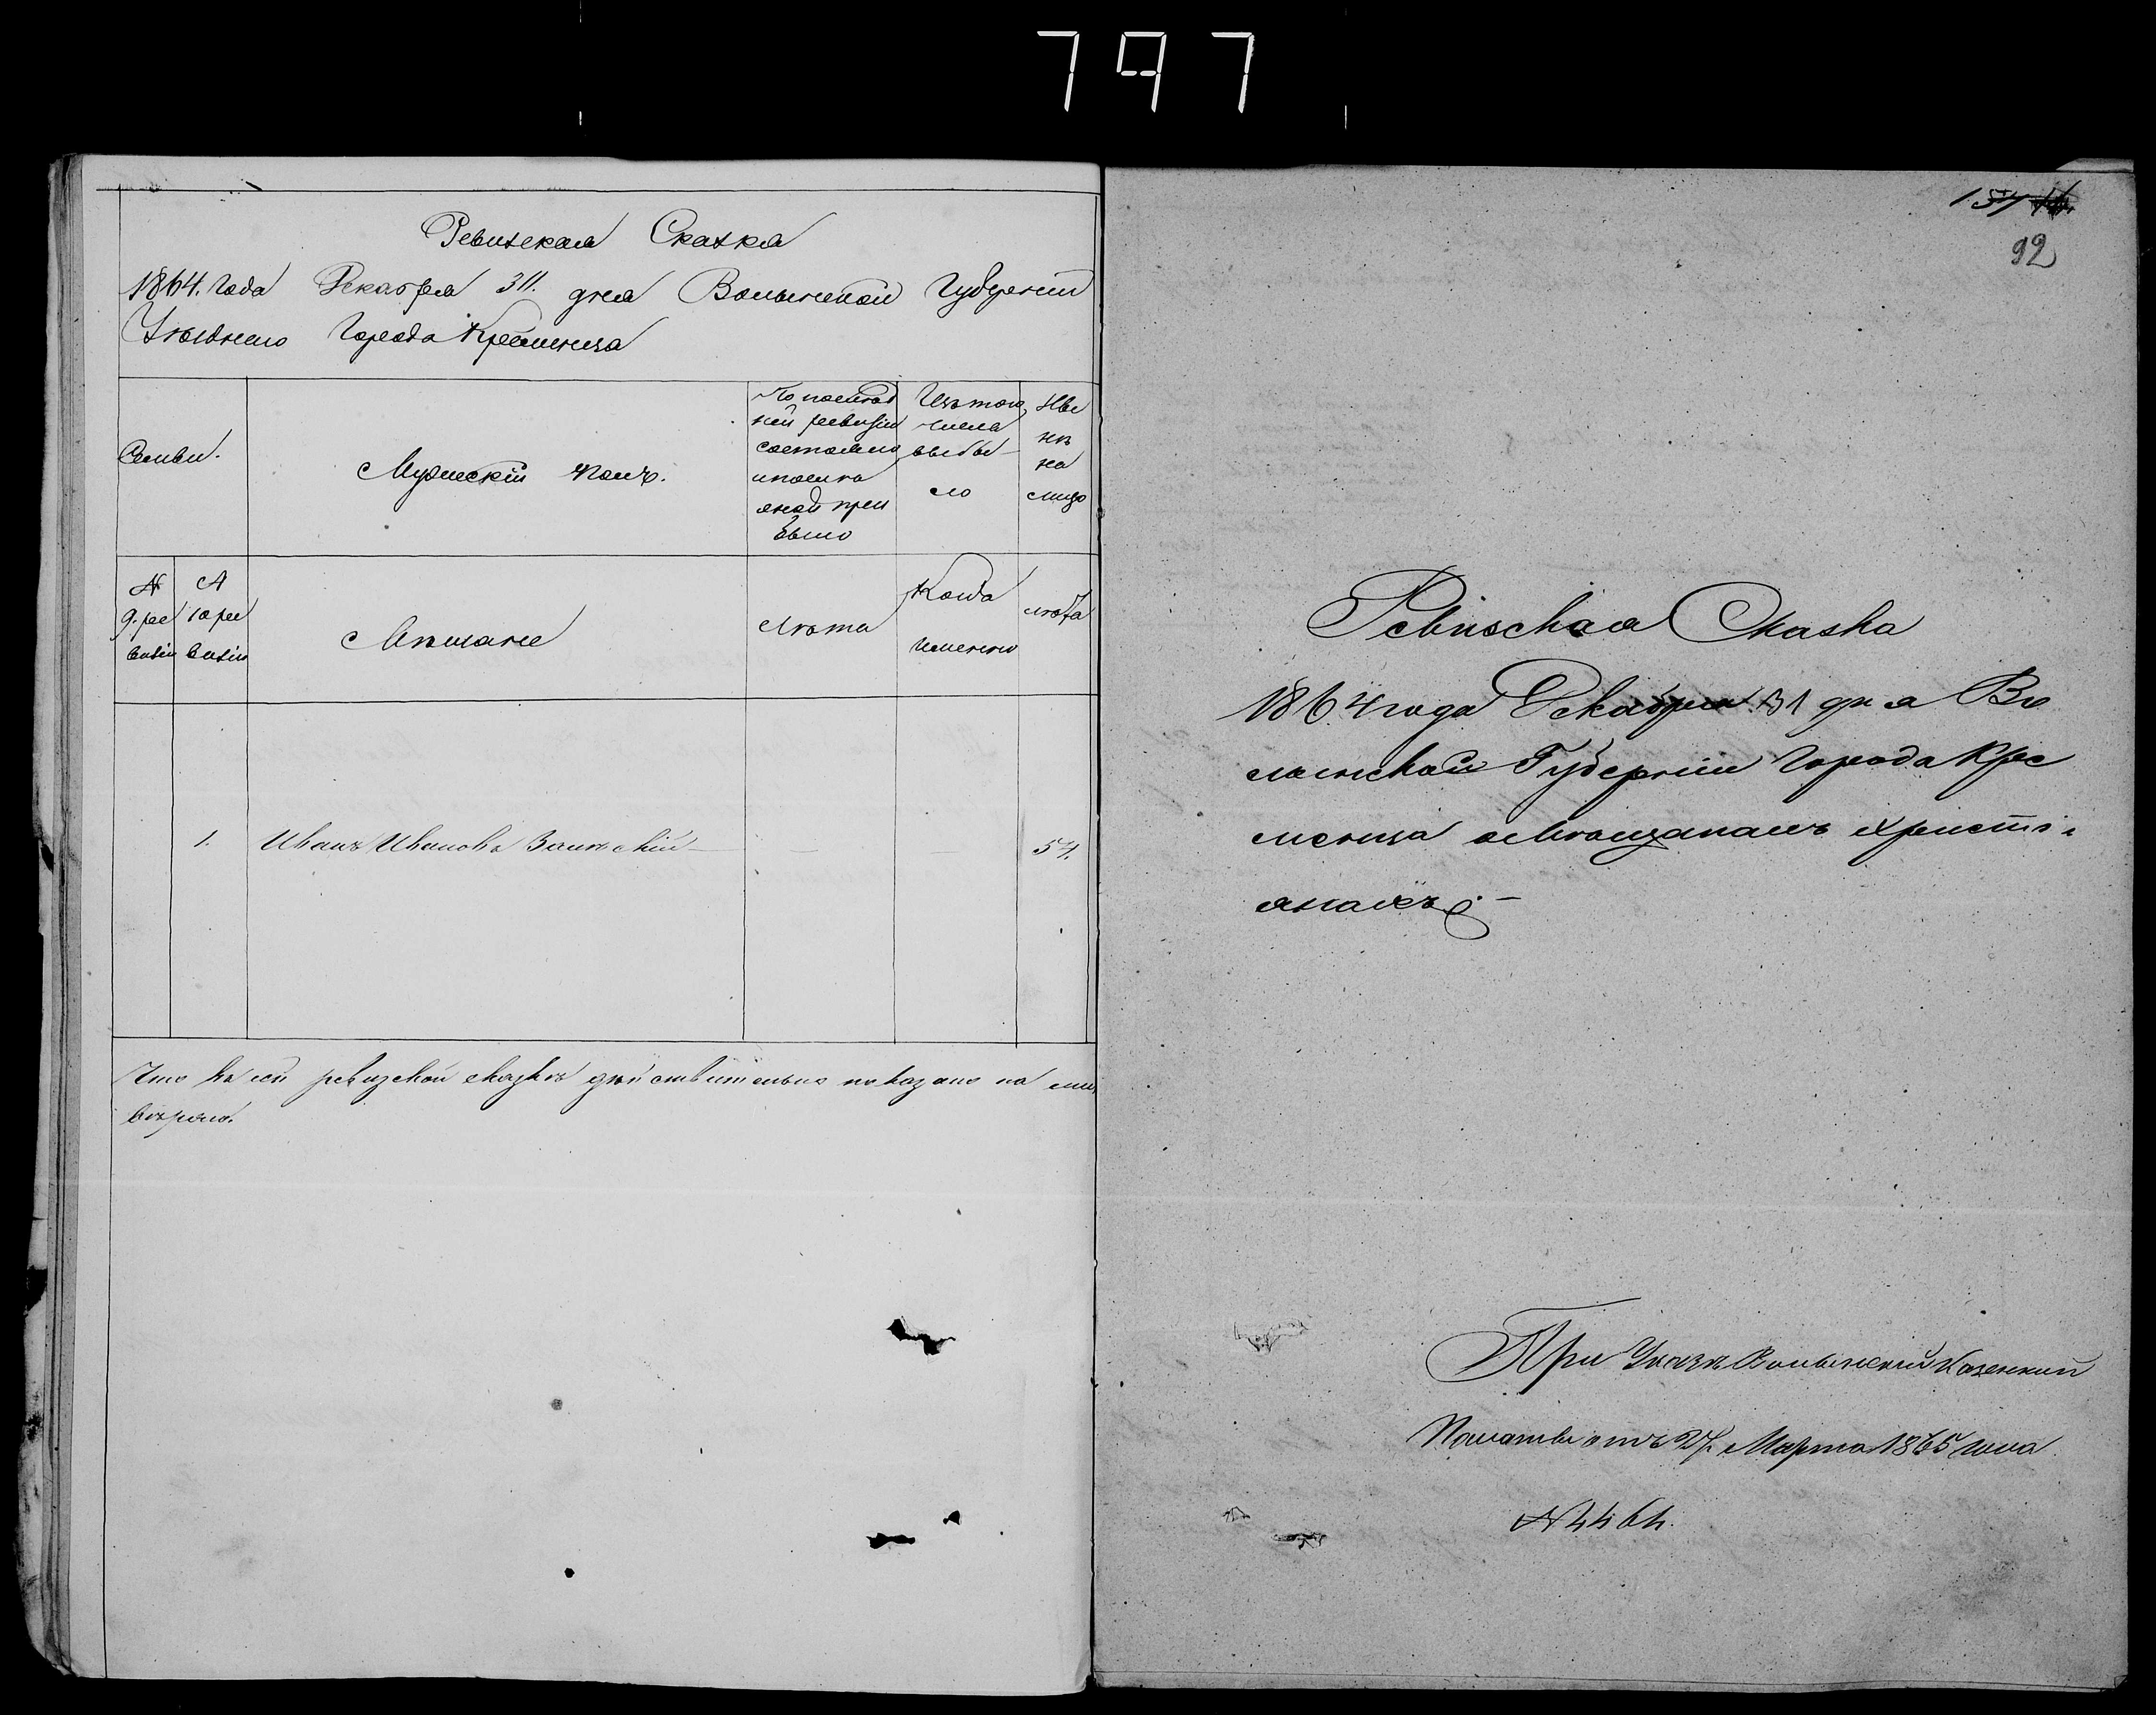 797
Ревизская Сказка
1864. Года Декабря 31. дня Волынской Губерніи
Уѣзднаго Города Кременца
Семьи.
Мужескій полъ.
По послѣд
ней ревизіи
состояло
и послѣ
оной при
было
Изъ того
числа
выбы
ло
Ны
нѣ
на
лицо
№
9. ре
визіи
№
10 ре
визіи
Мѣщане
Лѣта
Когда
именно
лѣта
1.
Иванъ Ивановъ
54.
Что въ сей ревизской сказкѣ дѣйствительно показано на лиц.
вѣрно.
92
Ревизская Сказка
1864 года Декабря 31 дня Во
лынской Губерніи Города Кре
менца о Мѣщанахъ Христі-
анахъ. —
При Указѣ Волынской Казенной
Палаты отъ 27. Марта 1865 года
№ 4464.